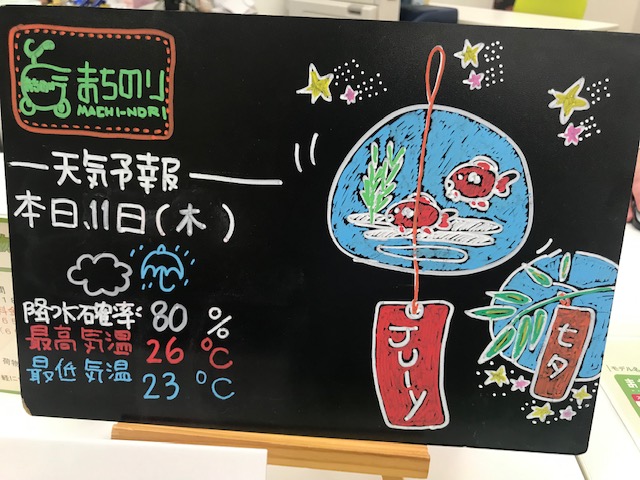 まちのり
MACHI-NORI
天気予報
本日、11日(木)
降水確率 80 %
最高気温 26 ℃
最低気温 23 ℃
JULY
七夕